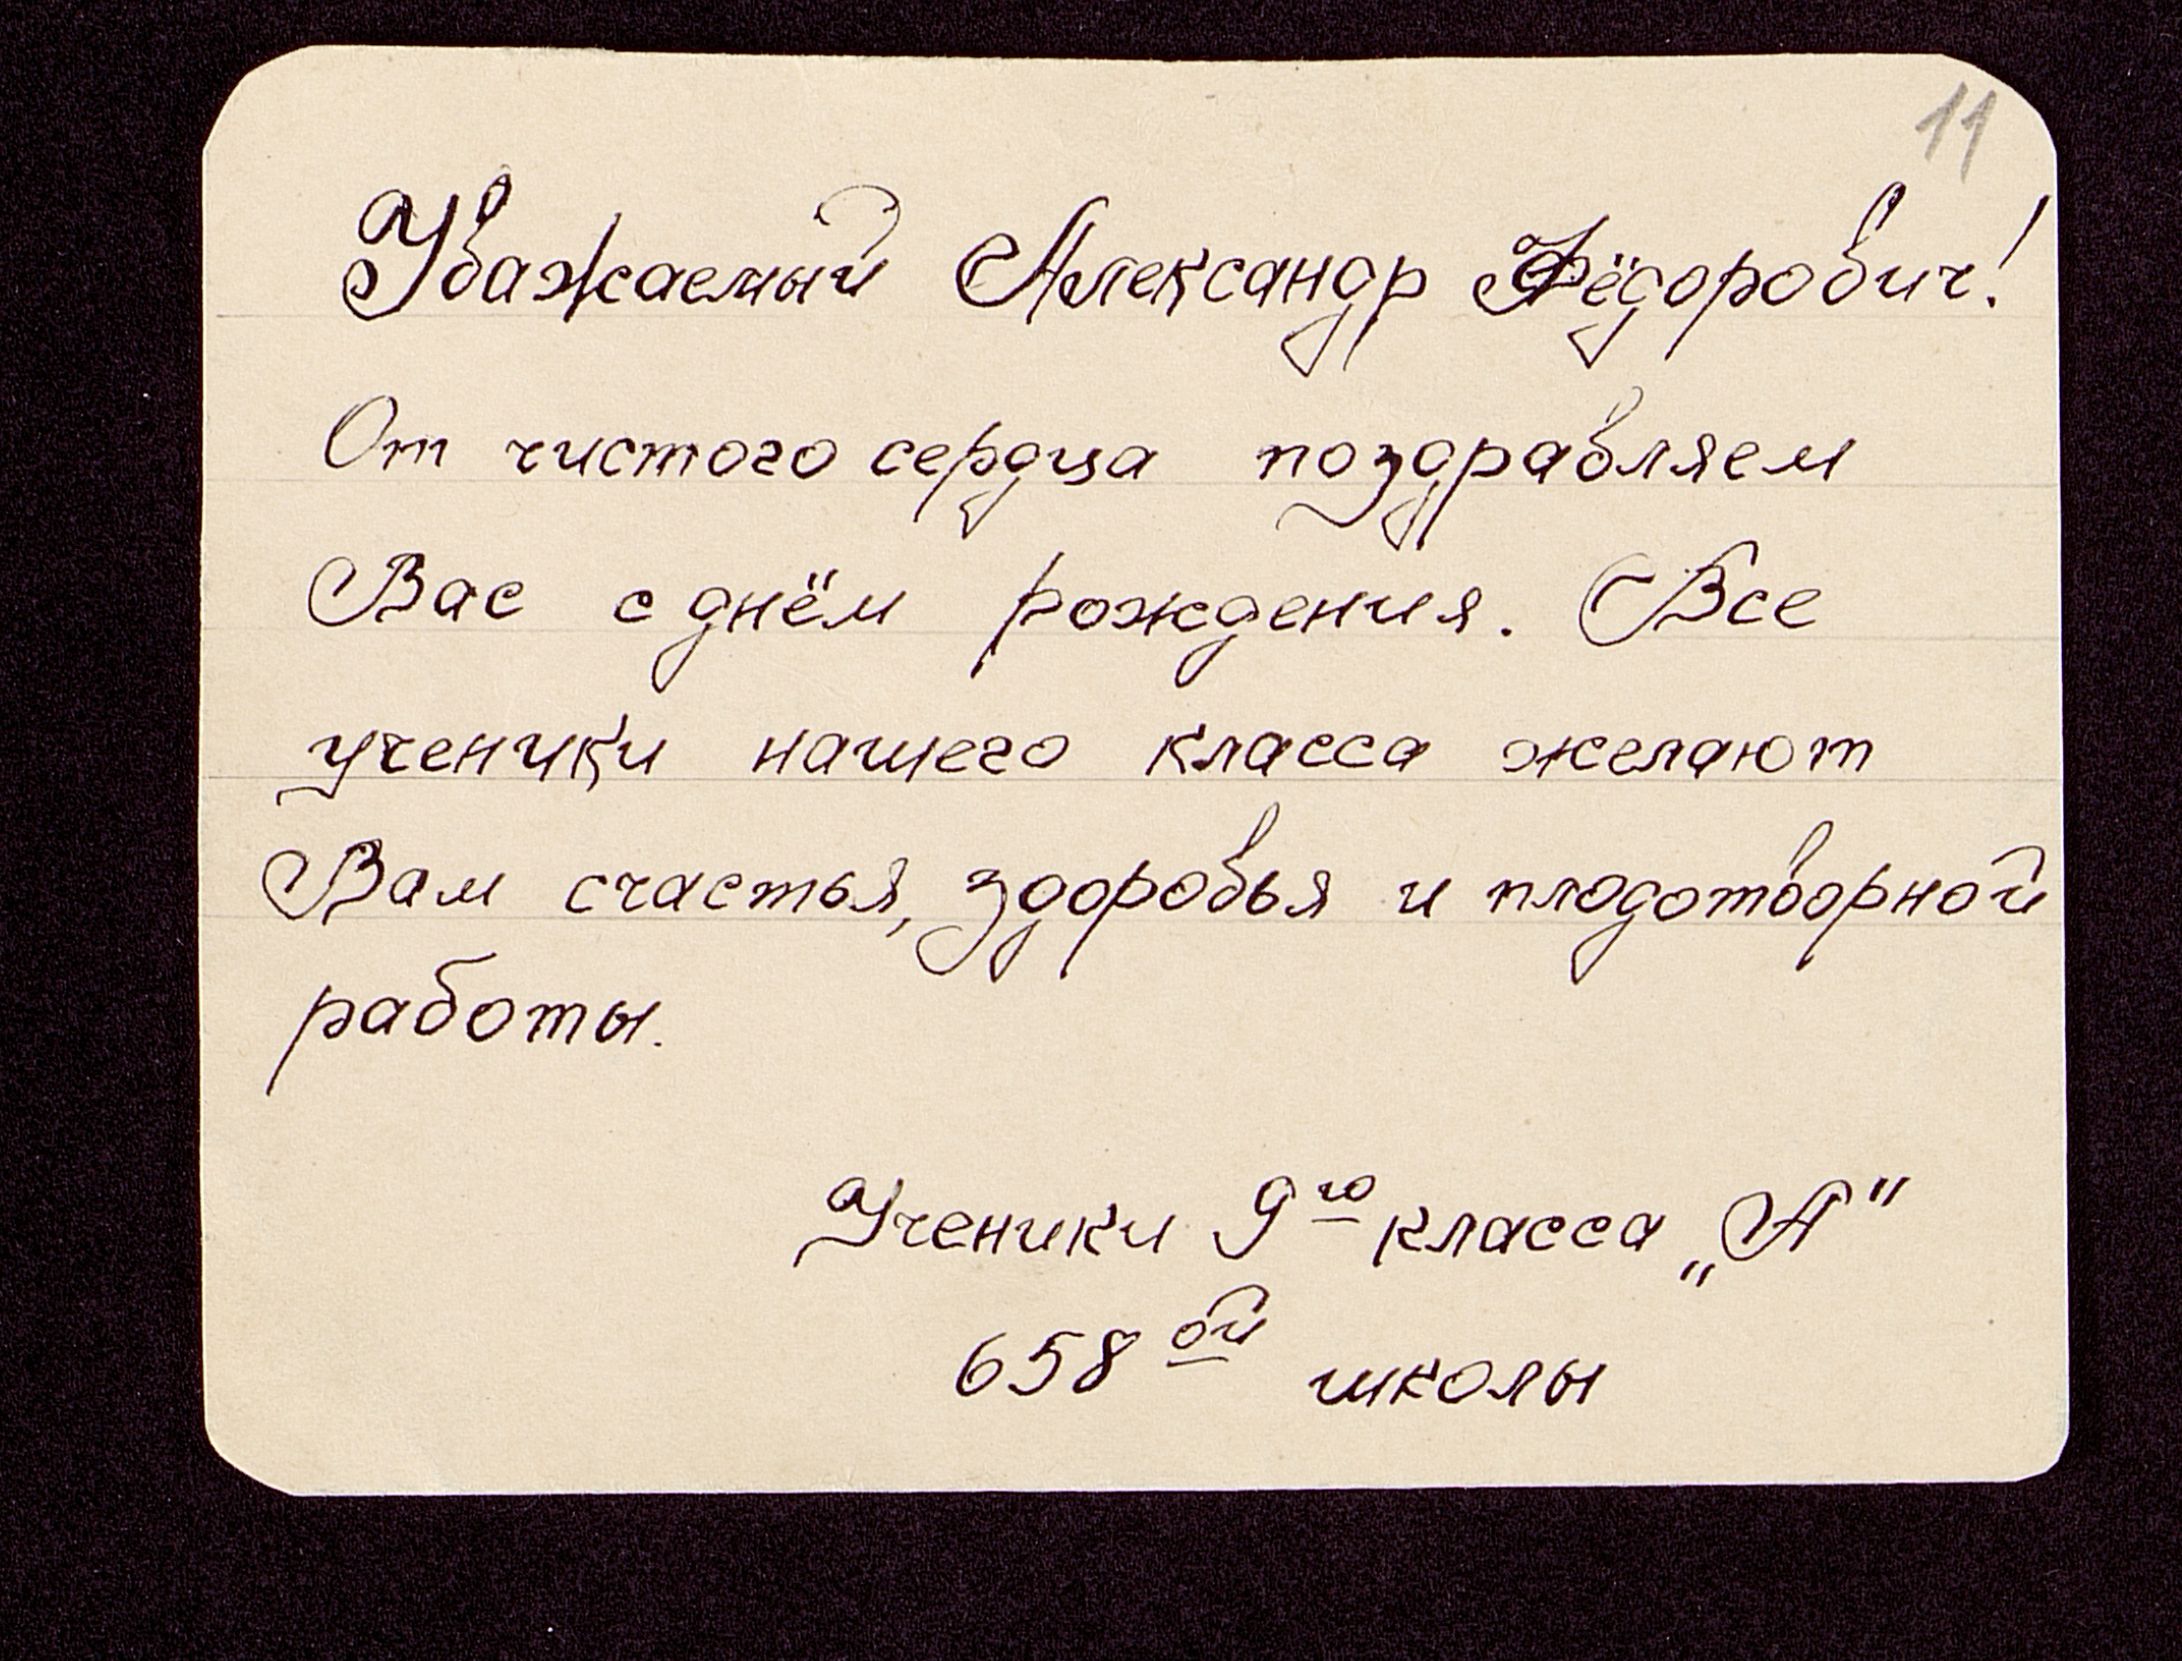 11
Уважаемый Александр Фёдорович!
От чистого сердца поздравляем
Вас с днём рождения. Все
ученики нашего класса желают
Вам счастья, здоровья и плодотворной
работы.
Ученики 9го класса „А"
658ой школы